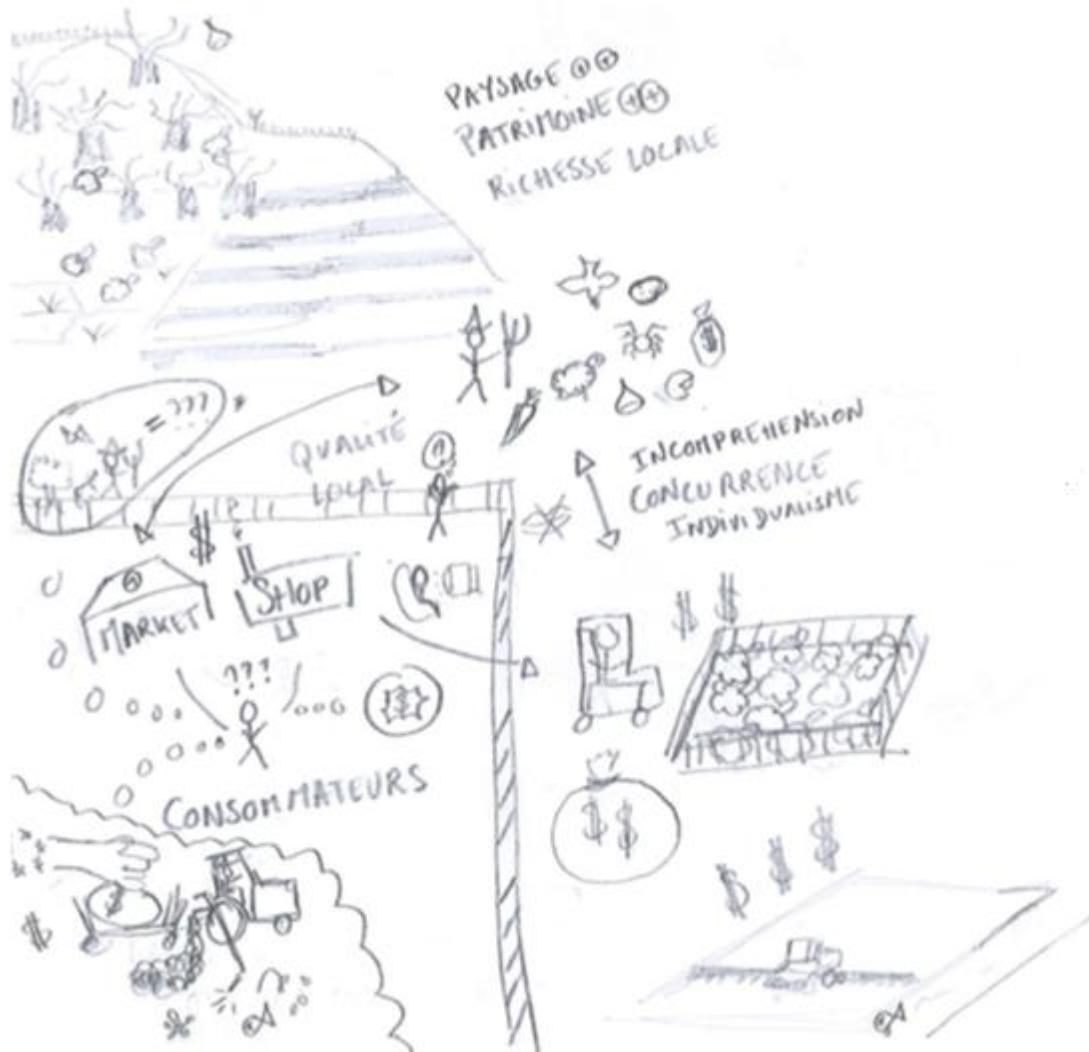 PAYSAGE
PATRIMOINE
RICHESSE LOCALE
= ???
QUALITÉ
LOCAL
INCOMPREHENSION
CONCURRENCE
INDIVIDUALISME
$
$
MARKET
SHOP
$ $
???
CONSOMMATEURS
$ $
$ $ $
$
$